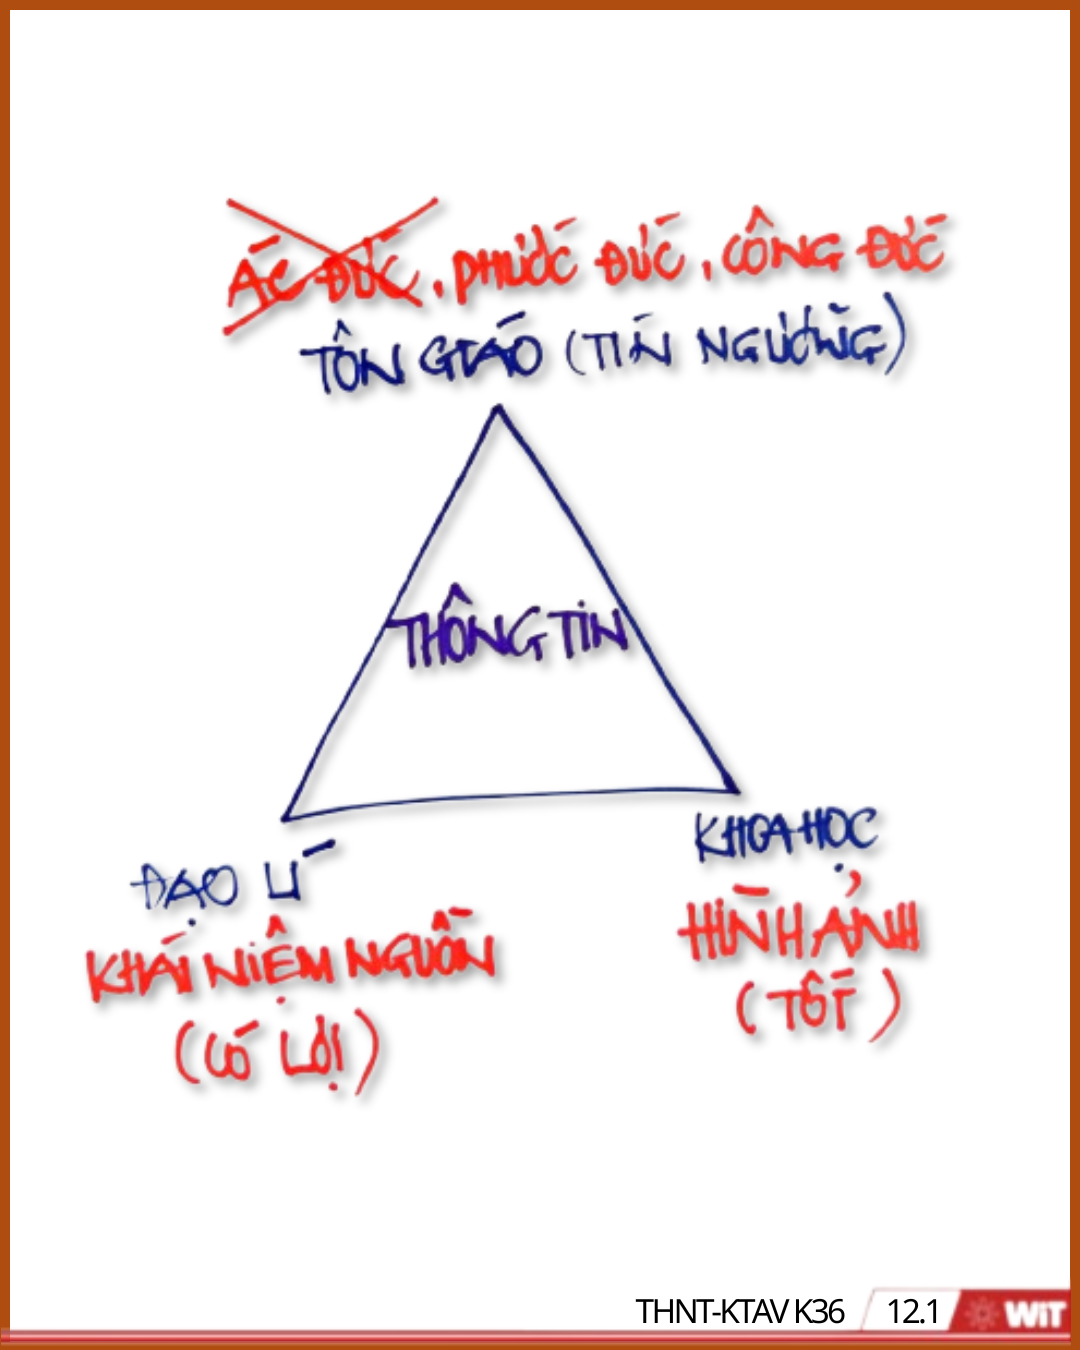 ÁC ĐỨC, PHƯỚC ĐỨC, CÔNG ĐỨC
TÔN GIÁO (TÍN NGƯỠNG)
THÔNG TIN
ĐẠO LÍ
KHÁI NIỆM NGUỒN
(CÓ LỢI)
KHOA HỌC
HÌNH ẢNH
(TỐT)
THNT-KTAV K36 12.1 WiT